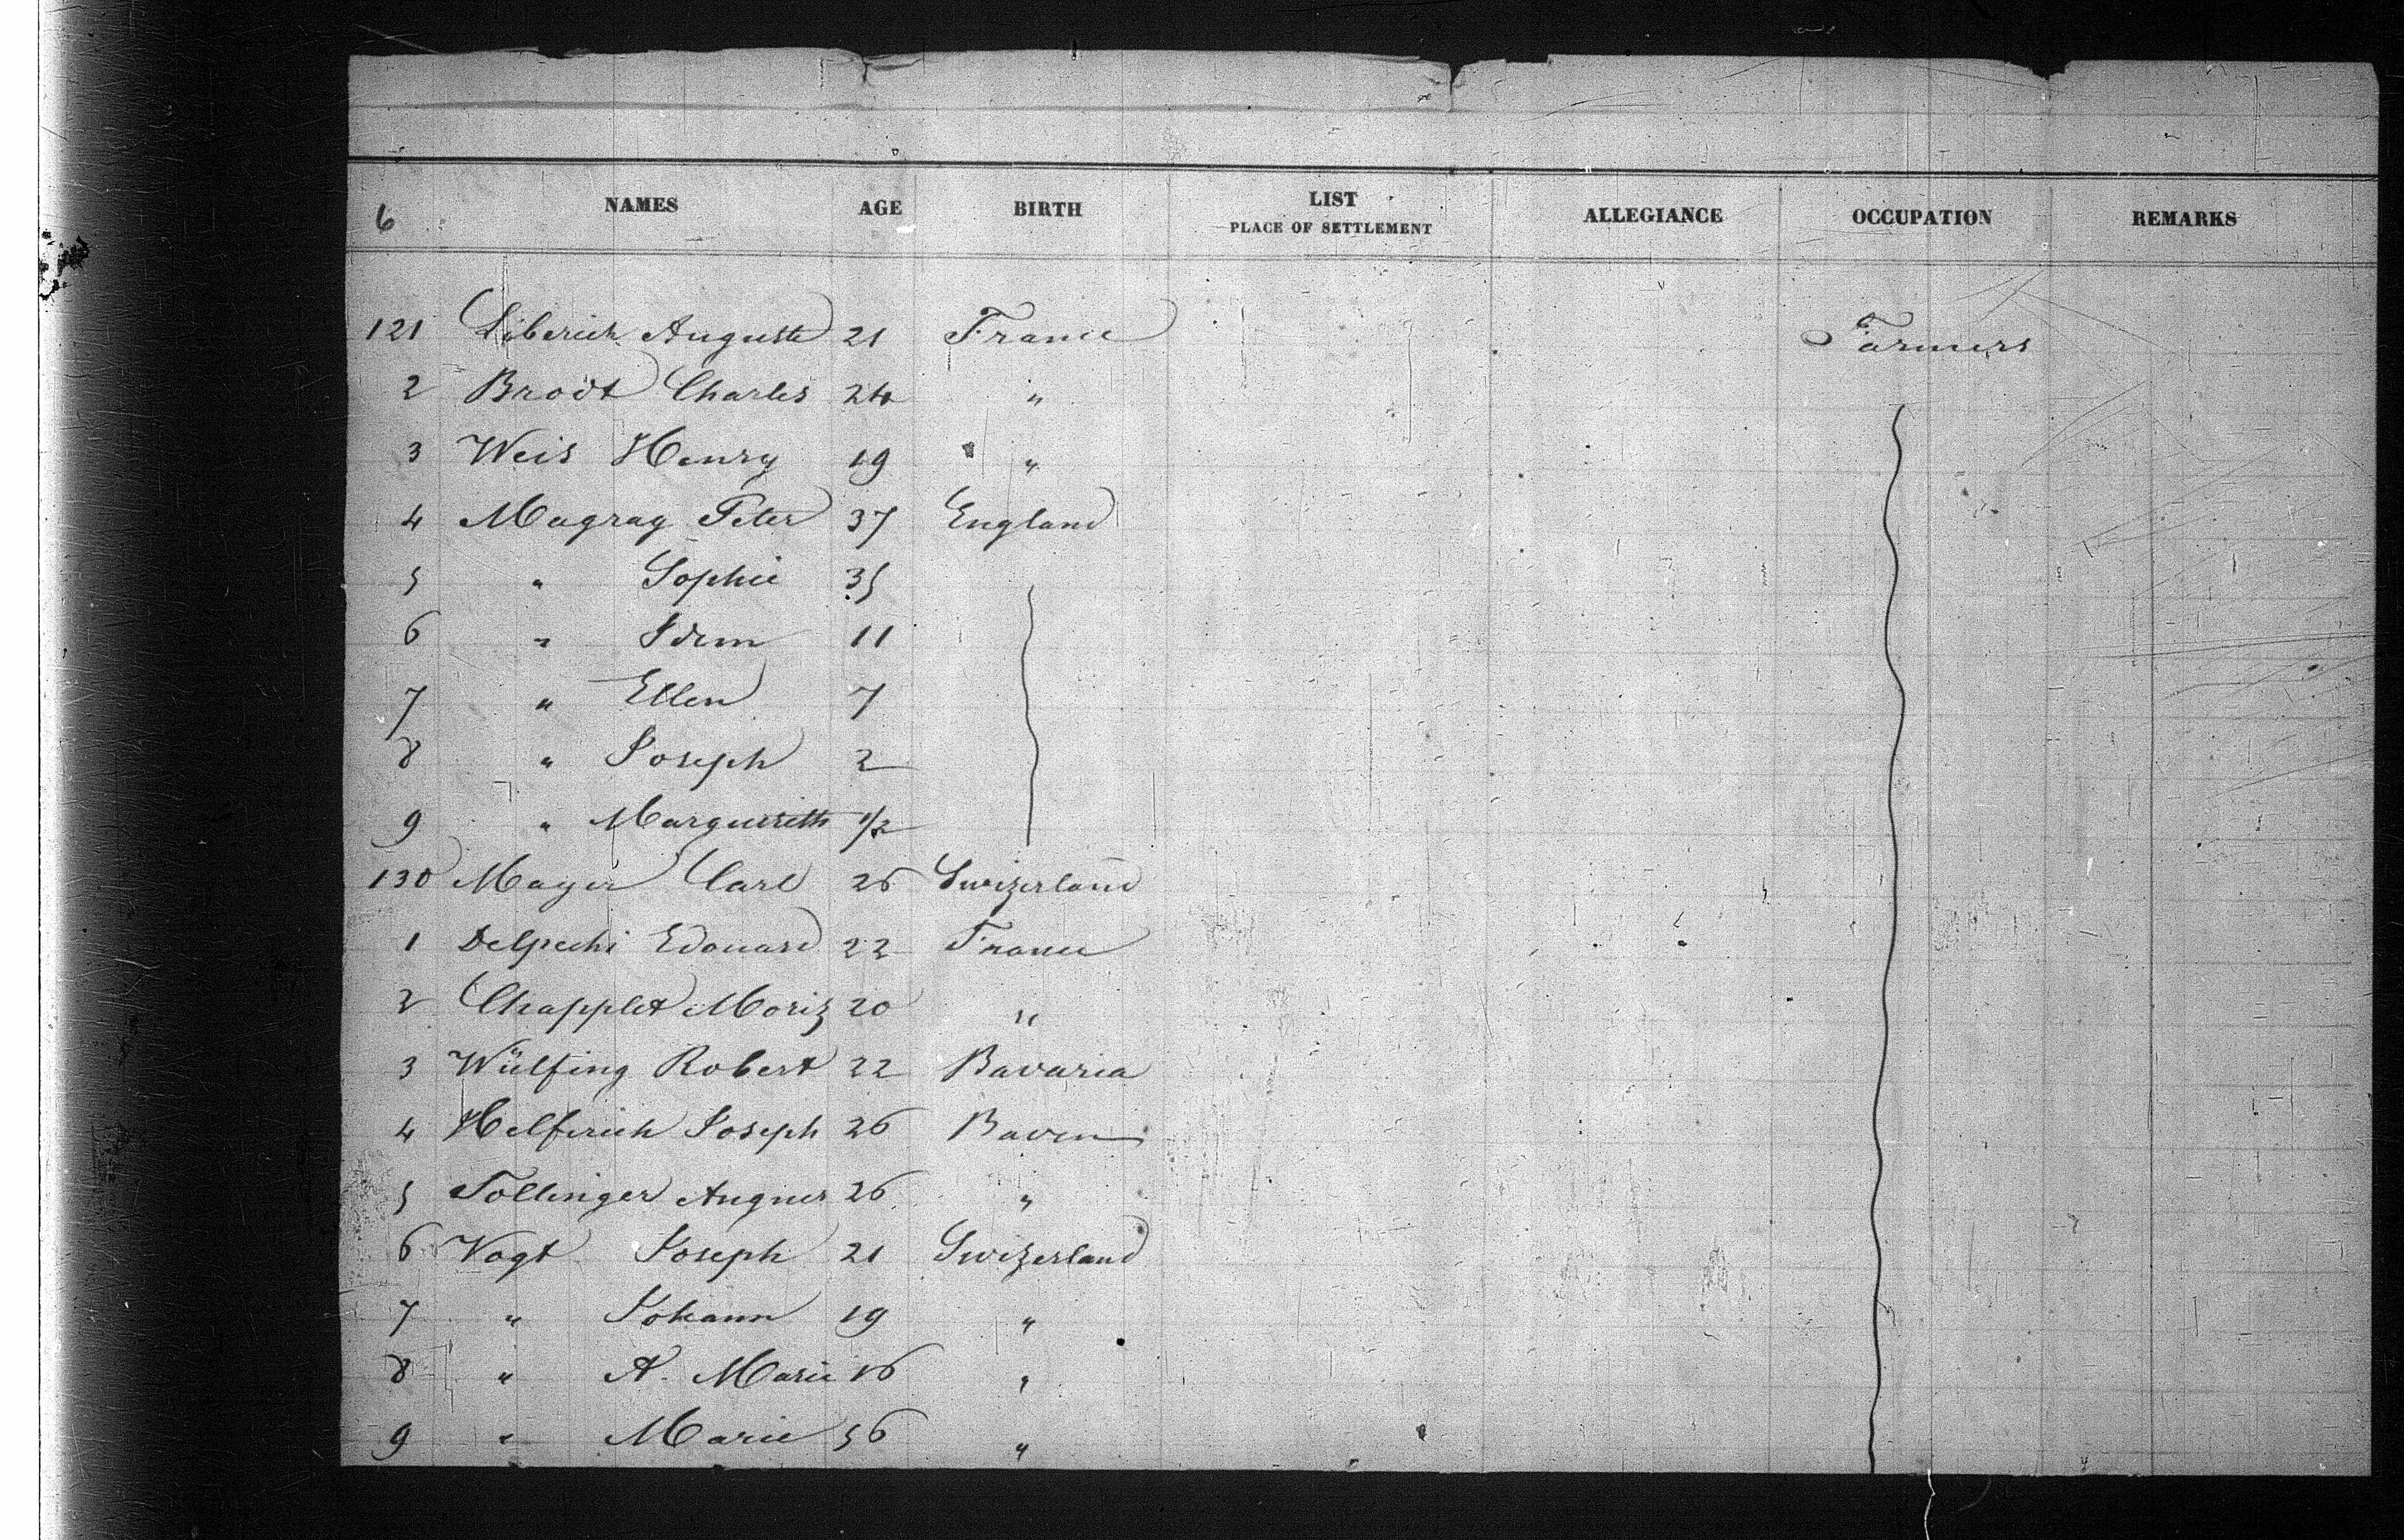 6 NAMES AGE BIRTH LIST PLACE OF SETTLEMENT ALLEGIANCE OCCUPATION REMARKS
121 Liberich Auguste 21 France Farmers
2 Brodt Charles 24 "
3 Weis Henry 19 "
4 Magray Peter 37 England
5 " Sophie 35
6 " 11
7 " Ellen 7
8 " Joseph 2
9 " 1/2
130 Mayer Carl 26 Swizerland
1 Delpechi Edouard 22 France
2 Chapplet Moriz 20 "
3 Wülfing Robert 22 Bavaria
4 Helferich Joseph 26 Baden
5 Tollinger 26 "
6 Vogt Joseph 21 Swizerland
7 " Johann 19 "
8 " A. Marie 16 "
9 " Marie 56 "